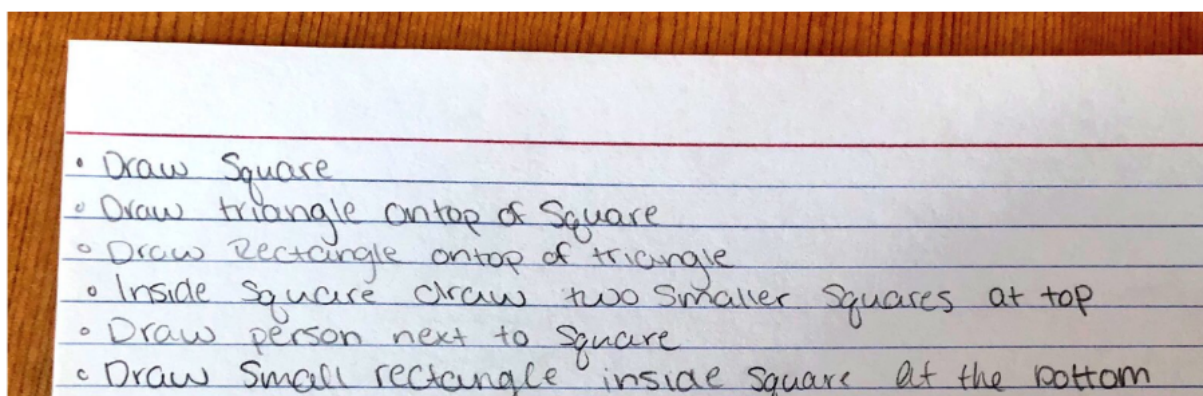 • Draw Square
• Draw triangle ontop of Square
• Draw Rectangle ontop of triangle
• Inside Square draw two Smaller Squares at top
• Draw person next to Square
• Draw Small rectangle inside square at the bottom